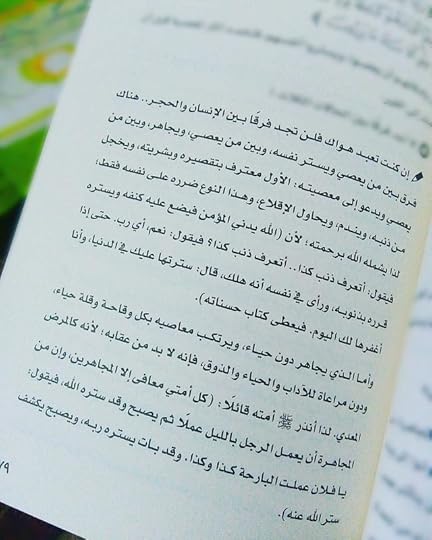 إن كنت تعبد هواك فلن تجد فرقًا بين الإنسان والحجر.. هناك
فرق بين من يعصي ويستر نفسه، وبين من يعصي، ويجاهر، وبين من
يعصي ويدعو إلى معصيته: الأول معترف بتقصيره وبشريته، ويخجل
من ذنبه، ويندم، ويحاول الإقلاع، وهذا النوع ضرره على نفسه فقط؛
لذا يشمله الله برحمته؛ لأن (الله يدني المؤمن فيضع عليه كنفه ويستره
فيقول: أتعرف ذنب كذا.. أتعرف ذنب كذا؟ فيقول: نعم، أي رب. حتى إذا
قرره بذنوبه، ورأى في نفسه أنه هلك، قال: سترتها عليك في الدنيا، وأنا
أغفرها لك اليوم. فيعطى كتاب حسناته).
وأما الذي يجاهر دون حياء، ويرتكب معاصيه بكل وقاحة وقلة حياء،
ودون مراعاة للآداب والحياء والذوق، فإنه لا بد من عقابه؛ لأنه كالمرض
المعدي. لذا أنذر ﷺ أمته قائلًا: (كل أمتي معافى إلا المجاهرين، وإن من
المجاهرة أن يعمل الرجل بالليل عملًا ثم يصبح وقد ستره الله، فيقول:
يا فلان عملت البارحة كذا وكذا. وقد بات يستره ربه، ويصبح يكشف
ستر الله عنه).